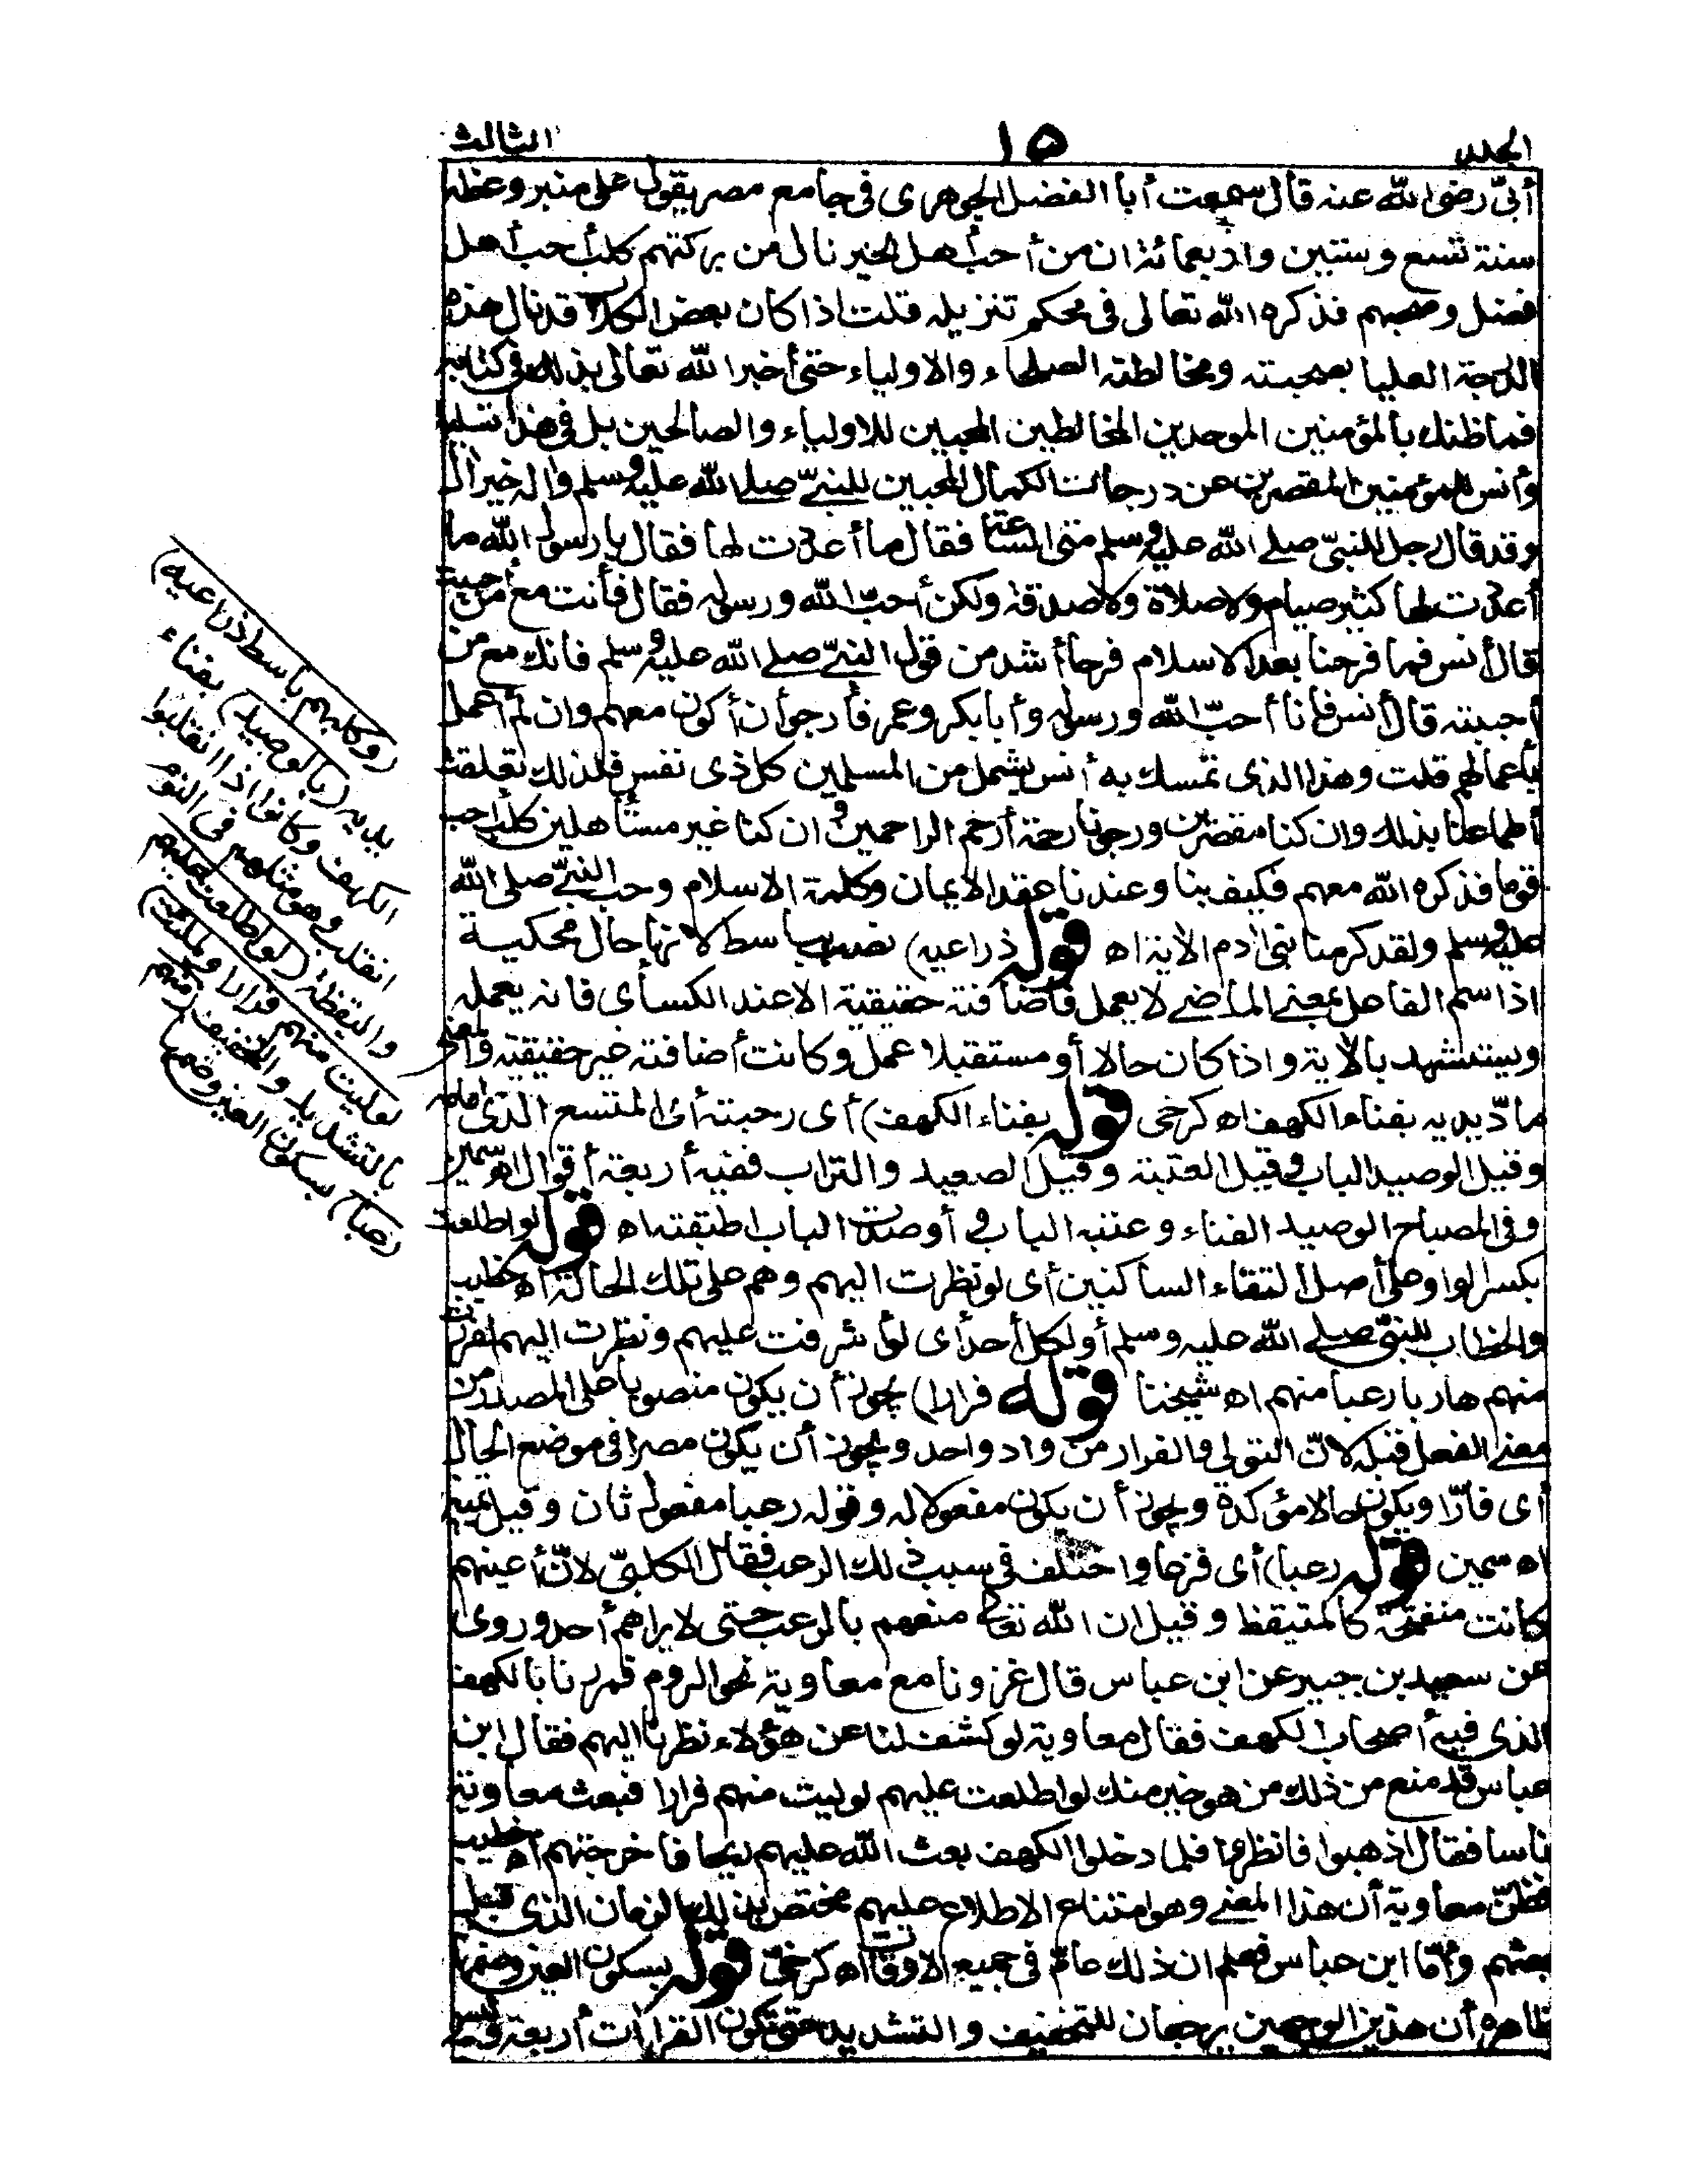 المجلد
١٥
الثالث
أبي رضي الله عنه قال سمعت أبا الفضل الجوهري في جامع مصر يقول على منبر وعظه
سنة تسع وستين وأربعمائة ان من أحب أهل الخير نال من بركتهم كلب أحب أهل
فضل وصحبهم فذكره الله تعالى في محكم تنزيله قلت اذا كان بعض الكلاب قد نال هذه
الدرجة العليا بصحبته ومخالطته الصلحاء والاولياء حتى أخبر الله تعالى بذلك في كتابه
فما ظنك بالمؤمنين الموحدين المخالطين المحبين للاولياء والصالحين بل في هذا تسلية
وأنس للمؤمنين المقصرين عن درجات الكمال المحبين للنبي صلى الله عليه وسلم واله خير ال
وقد قال رجل للنبي صلى الله عليه وسلم متى الساعة فقال ما أعددت لها فقال يا رسول الله ما
أعددت لها كثير صيام ولا صلاة ولا صدقة ولكن أحب الله ورسوله فقال فأنت مع من أحببت
قال أنس فما فرحنا بعد الاسلام فرحا أشد من قول النبي صلى الله عليه وسلم فانك مع من
أحببته قال أنس فأنا أحب الله ورسوله وأبا بكر وعمر فأرجو أن أكون معهم وان لم أعمل
بأعمالهم قلت وهذا الذي تمسك به أنس يشمل من المسلمين كل ذي نفس فلذلك تعلقت
أطماعنا بذلك وان كنا مقصرين ورجونا رحمة أرحم الراحمين وان كنا غير مستأهلين كلب أحب
قوما فذكره الله معهم فكيف بنا وعندنا عقد الايمان وكلمة الاسلام وحب النبي صلى الله
عليه وسلم ولقد كرمنا بني ادم الاية اه قوله ذراعيه) نصب بباسط لانها حال محكية
اذا سم الفاعل بمعنى الماضي لا يعمل فاضافته حقيقية الا عند الكسأى فانه يعمله
ويستشهد بالاية واذا كان حالا أو مستقبلا عمل وكانت أضافته غير حقيقية والمعنى
مادّ يديه بفناء الكهف اه كرخي قوله بفناء الكهف) أي رحبته أي المتسع الذي أمامه
وقيل الوصيد الباب وقيل العتبة وقيل الصعيد والتراب ففيه أربعة أقوال اه سمين
وفي المصباح الوصيد الفناء وعتبه الباب وأوصدت الباب اطبقته اه قوله لو اطلعت
بكسر الواو على أصل التقاء الساكنين أي لو نظرت اليهم وهم على تلك الحالة اه خطيب
والخطاب للنبي صلى الله عليه وسلم أو لكل أحد أي لو أشرفت عليهم ونظرت اليهم لفررت
منهم هاربا رعبا منهم اه شيخنا قوله فرارا) يجوز أن يكون منصوبا على المصدر من
معنى الفعل قبله لانّ التولي والفرار من واد واحد ويجوز أن يكون مصدرا في موضع الحال
أي فارّا ويكون حالا مؤكدة ويجوز أن يكون مفعولا له وقوله رعبا مفعول ثان وقيل تمييز
اه سمين قوله رعبا) أي فزعا واختلف في سبب ذلك الرعب فقال الكلبيّ لانّ أعينهم
كانت منفتحة كالمتيقظ وقيل ان الله تعالى منعهم بالرعب حتى لا يراهم أحد وروى
عن سعيد بن جبير عن ابن عباس قال غزونا مع معاوية نحو الروم فمررنا بالكهف
الذي فيه أصحاب الكهف فقال معاوية لو كشف لنا عن هؤلاء نظرنا اليهم فقال ابن
عباس قد منع من ذلك من هو خير منك لو اطلعت عليهم لوليت منهم فرارا فبعث معاوية
ناسا فقال اذهبوا فانظروا فلما دخلوا الكهف بعث الله عليهم ريحا فاخرجتهم اه خطيب
فظنّ معاوية أن هذا المعنى وهو امتناع الاطلاع عليهم مختص بذلك الزمان الذي قبل
بعثهم وأمّا ابن عباس فعلم ان ذلك عامّ في جميع الاوقات اه كرخيّ قوله بسكون العين وضمها
ظاهره أن هذين الوجهين يرجعان للتخفيف والتشديد حتى تكون القراات أربعة وليس
(وكلبهم باسط ذراعيه)
يديه (بالوصيد) بفناء
الكهف وكانوا اذا انقلبوا
انقلب وهو مثلهم في النوم
واليقظة (لو اطلعت عليهم
لوليت منهم فرارا ولملئت)
بالتشديد والتخفيف (منهم
رعبا) بسكون العين وضمها